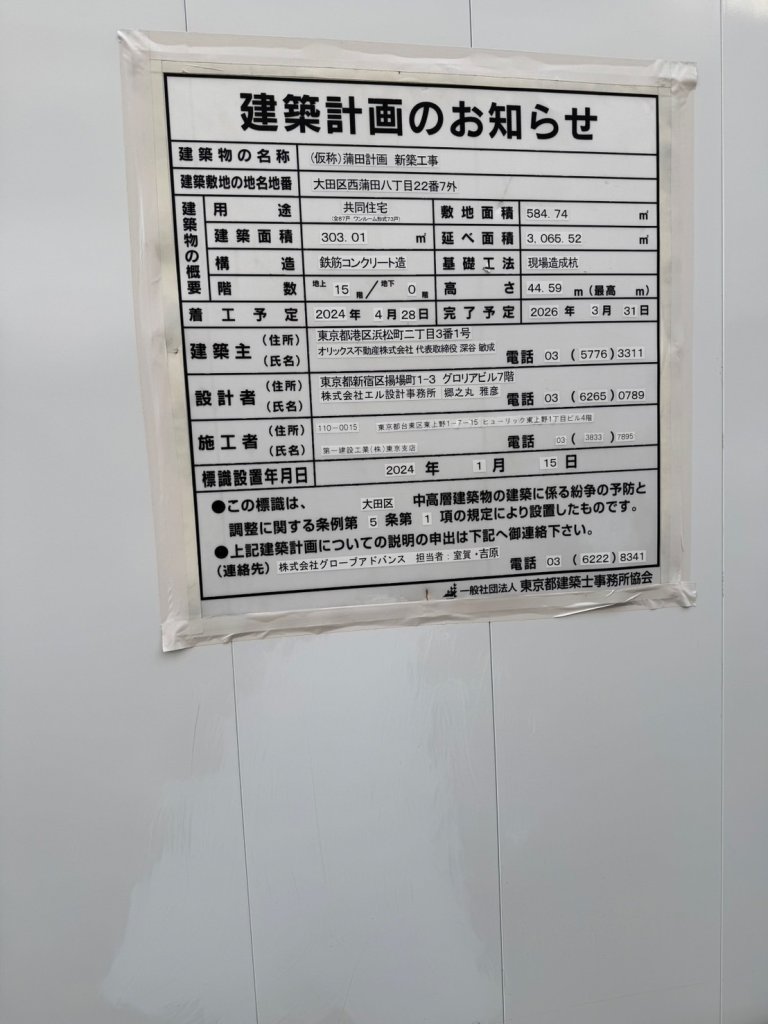 建築計画のお知らせ
建築物の名称 (仮称)蒲田計画 新築工事
建築敷地の地名地番 大田区西蒲田八丁目22番7外
建築物の概要
用途 共同住宅 (全87戸 ワンルーム形式73戸) 敷地面積 584.74 ㎡
建築面積 303.01 ㎡ 延べ面積 3,065.52 ㎡
構造 鉄筋コンクリート造 基礎工法 現場造成杭
階数 地上 15 階/地下 0 階 高さ 44.59 m(最高 m)
着工予定 2024年 4月28日 完了予定 2026年 3月 31日
建築主 (住所) 東京都港区浜松町二丁目3番1号
(氏名) オリックス不動産株式会社 代表取締役 深谷 敏成 電話 03 (5776)3311
設計者 (住所) 東京都新宿区揚場町1-3 グロリアビル7階
(氏名) 株式会社エル設計事務所 郷之丸 雅彦 電話 03 (6265)0789
施工者 (住所) 110-0015 東京都台東区東上野1-7-15 ヒューリック東上野1丁目ビル4階
(氏名) 第一建設工業(株)東京支店 電話 03 (3833)7895
標識設置年月日 2024 年 1 月 15 日
●この標識は、 大田区 中高層建築物の建築に係る紛争の予防と
調整に関する条例第 5 条第 1 項の規定により設置したものです。
●上記建築計画についての説明の申出は下記へ御連絡下さい。
(連絡先) 株式会社グローブアドバンス 担当者:室賀・吉原 電話 03 (6222)8341
一般社団法人 東京都建築士事務所協会